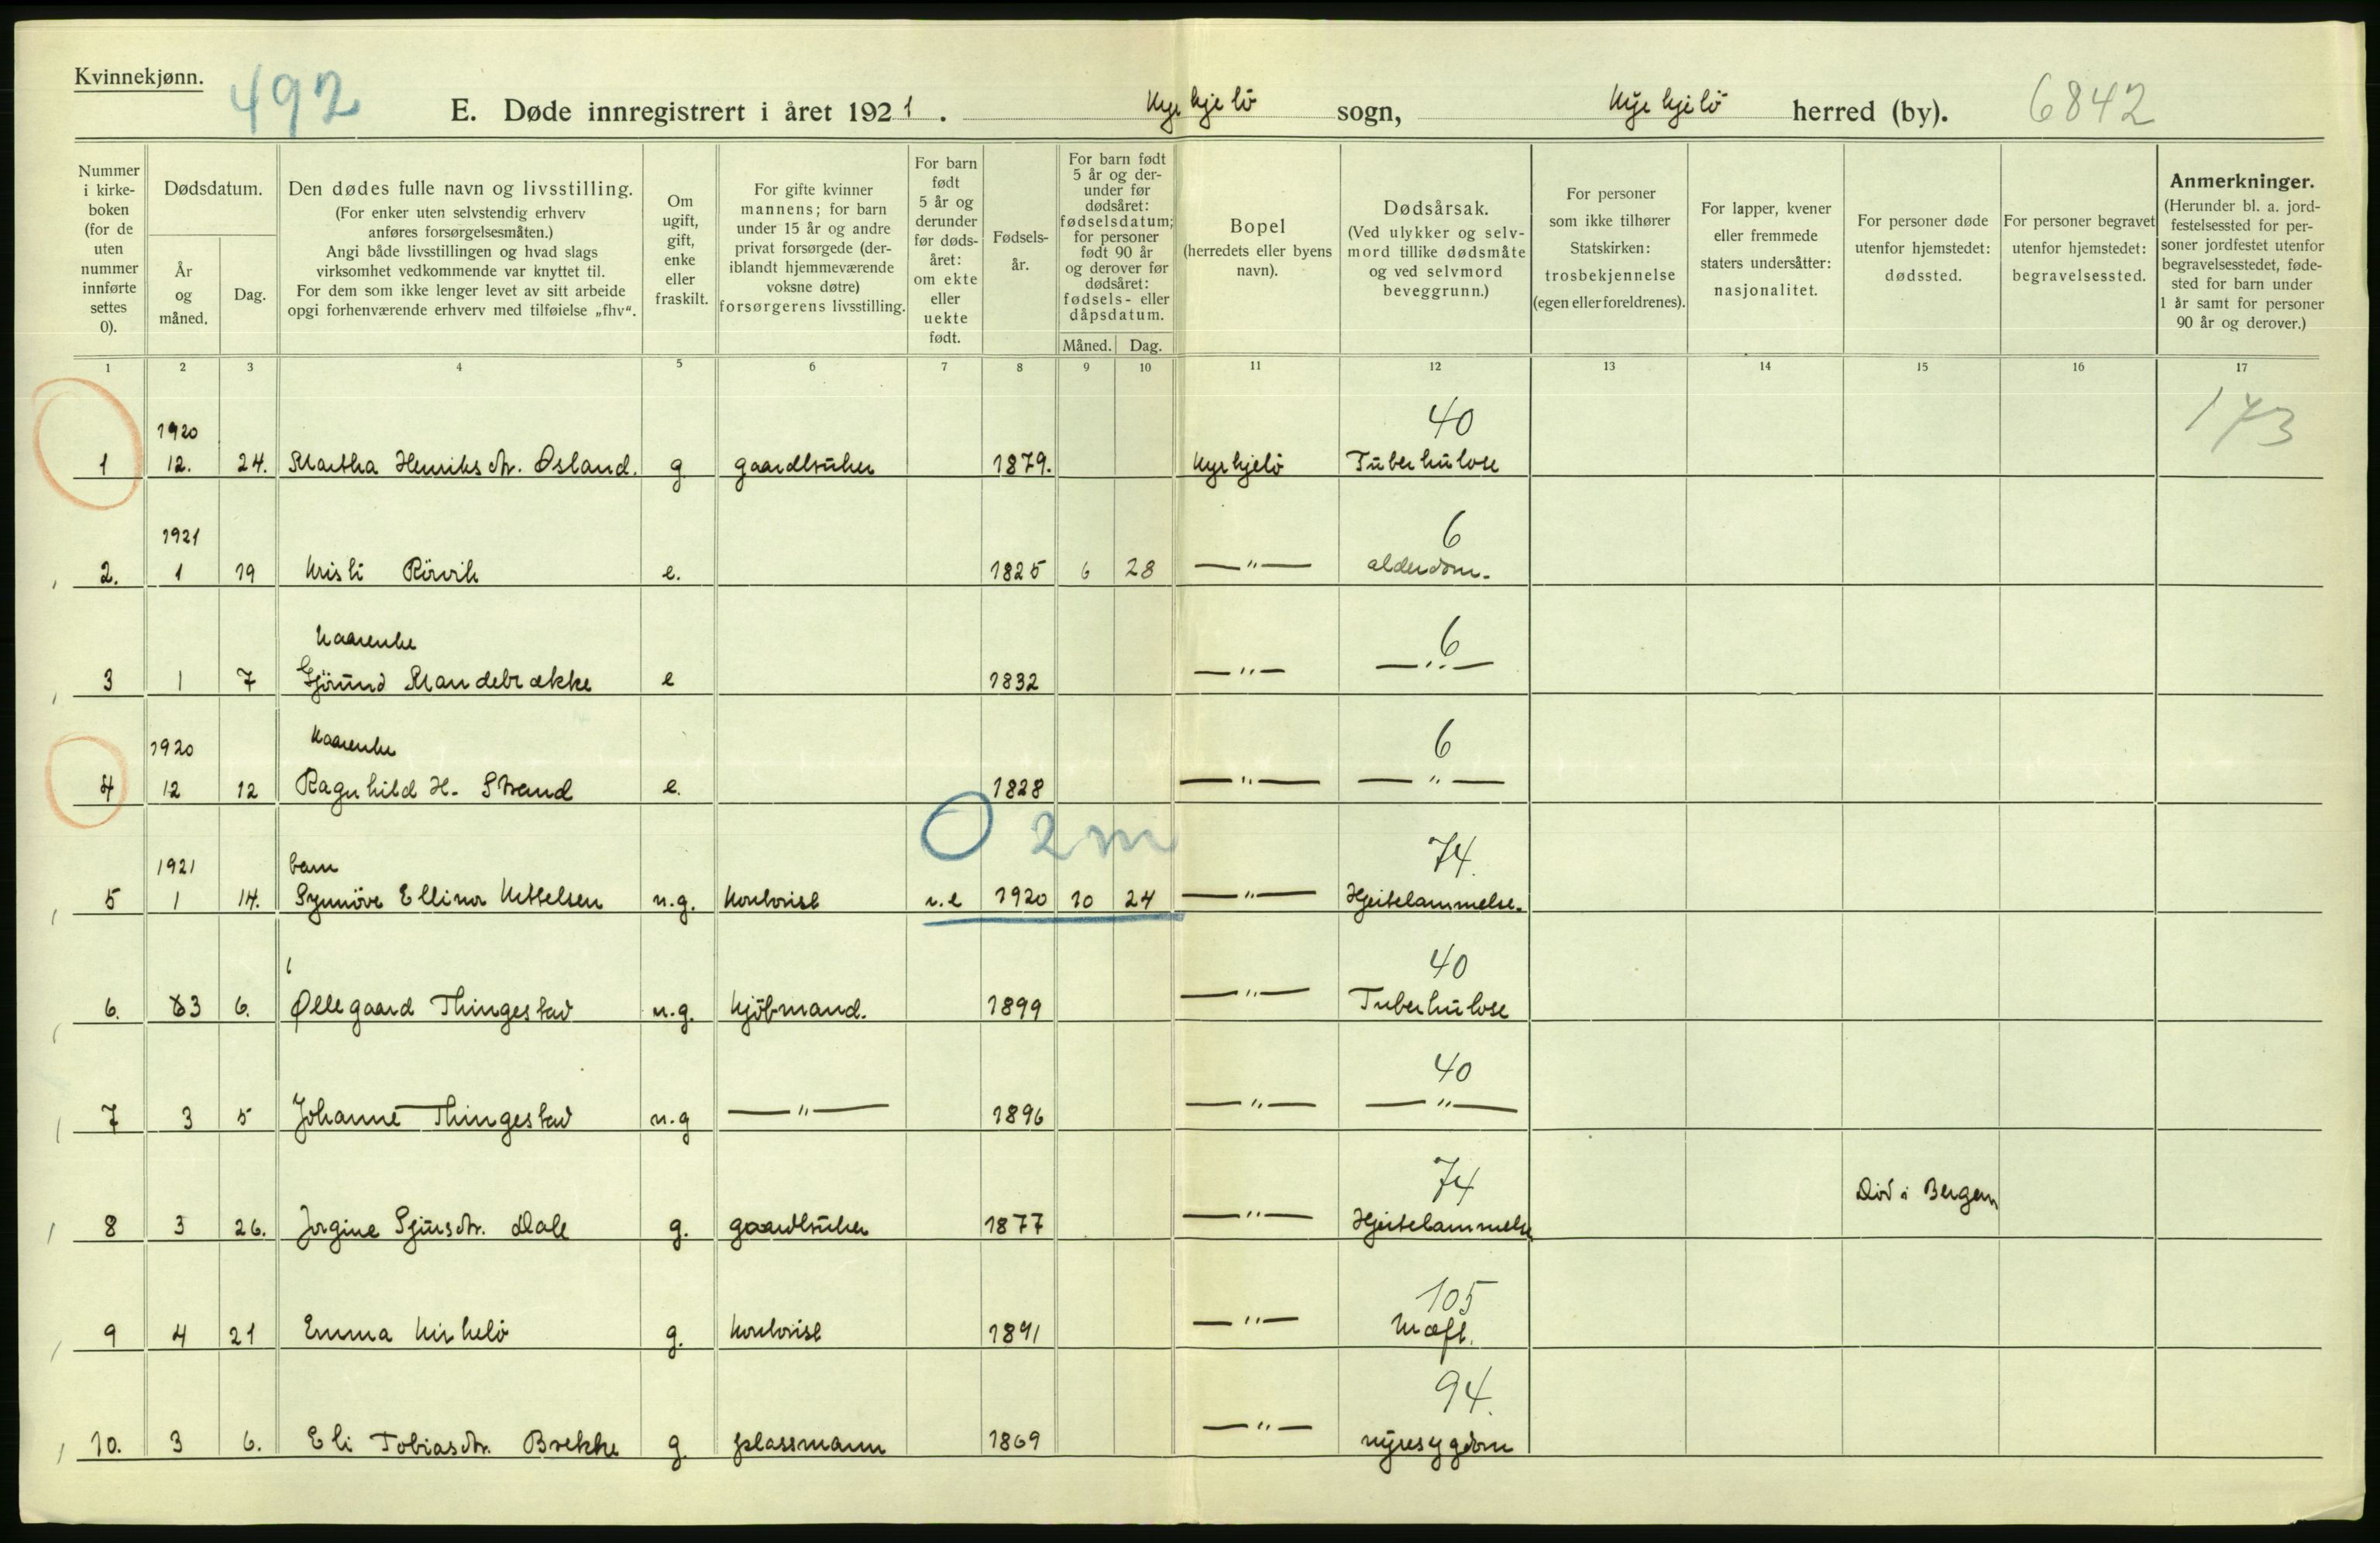 Kvinnekjønn.
492
E. Døde innregistrert i året 1921. Kyrkjelö sogn, Kyrkjelö herred (by). 6842
Nummer i kirke- boken (for de uten nummer innførte settes 0).
Dødsdatum.
År og måned.
Dag.
Den dødes fulle navn og livsstilling.
(For enker uten selvstendig erhverv
anføres forsørgelsesmåten.)
Angi både livsstillingen og hvad slags
virksomhet vedkommende var knyttet til.
For dem som ikke lenger levet av sitt arbeide
opgi forhenværende erhverv med tilføielse „fhv“.
Om ugift, gift, enke eller fraskilt.
For gifte kvinner
mannens; for barn
under 15 år og andre
privat forsørgede (der-
iblandt hjemmeværende
voksne døtre)
forsørgerens livsstilling.
For barn født 5 år og derunder før døds- året: om ekte eller uekte født.
Fødsels- år.
For barn født
5 år og der-
under før
dødsåret:
fødselsdatum;
for personer
født 90 år
og derover før
dødsåret:
fødsels- eller
dåpsdatum.
Måned. Dag.
Bopel
(herredets eller byens
navn).
Dødsårsak.
(Ved ulykker og selv-
mord tillike dødsmåte
og ved selvmord
beveggrunn.)
For personer
som ikke tilhører
Statskirken:
trosbekjennelse
(egen eller foreldrenes).
For lapper, kvener
eller fremmede
staters undersåtter:
nasjonalitet.
For personer døde
utenfor hjemstedet:
dødssted.
For personer begravet
utenfor hjemstedet:
begravelsessted.
Anmerkninger.
(Herunder bl. a. jord-
festelsessted for per-
soner jordfestet utenfor
begravelsesstedet, føde-
sted for barn under
1 år samt for personer
90 år og derover.)
1 2 3 4 5 6 7 8 9 10 11 12 13 14 15 16 17
1920 40 173
1 12. 24. Martha Henriksdtr. Osland. g gaardbruker 1879. Kyrkjelö Tuberkulose
1921 6
2. 1 19 Kristi Rörvik e. 1825 6 28 —"— alderdom.
Kaarenke 6
3 1 7 Gjörund Mandebrække e 1832 —"— —"—
1920 Kaarenke 6
4 12 12 Ragnhild H. Strand e. 1828 —"— —"—
0 2m
1921 barn 74.
5 1 14. Synnöve Ellinor Kittelsen u.g. Kontorist u.e 1920 10 24 —"— Hjertelammelse.
40
6. 3 6. Øllegaard Thingestad u.g. Kjöbmand. 1899 —"— Tuberkulose
40
7 3 5 Johanne Thingestad u.g —"— 1896 —"— —"—
74 Död i Bergen
8 3 26. Jorgine Sjursdtr. Dale g. gaardbruker 1877 —"— Hjertelammelse
105
9 4 21 Emma Kirkelö g. Kontorist 1891 —"— Kræft.
94.
10. 3 6. Eli Tobiasdtr. Brekke g plassmann 1869 —"— nyresygdom